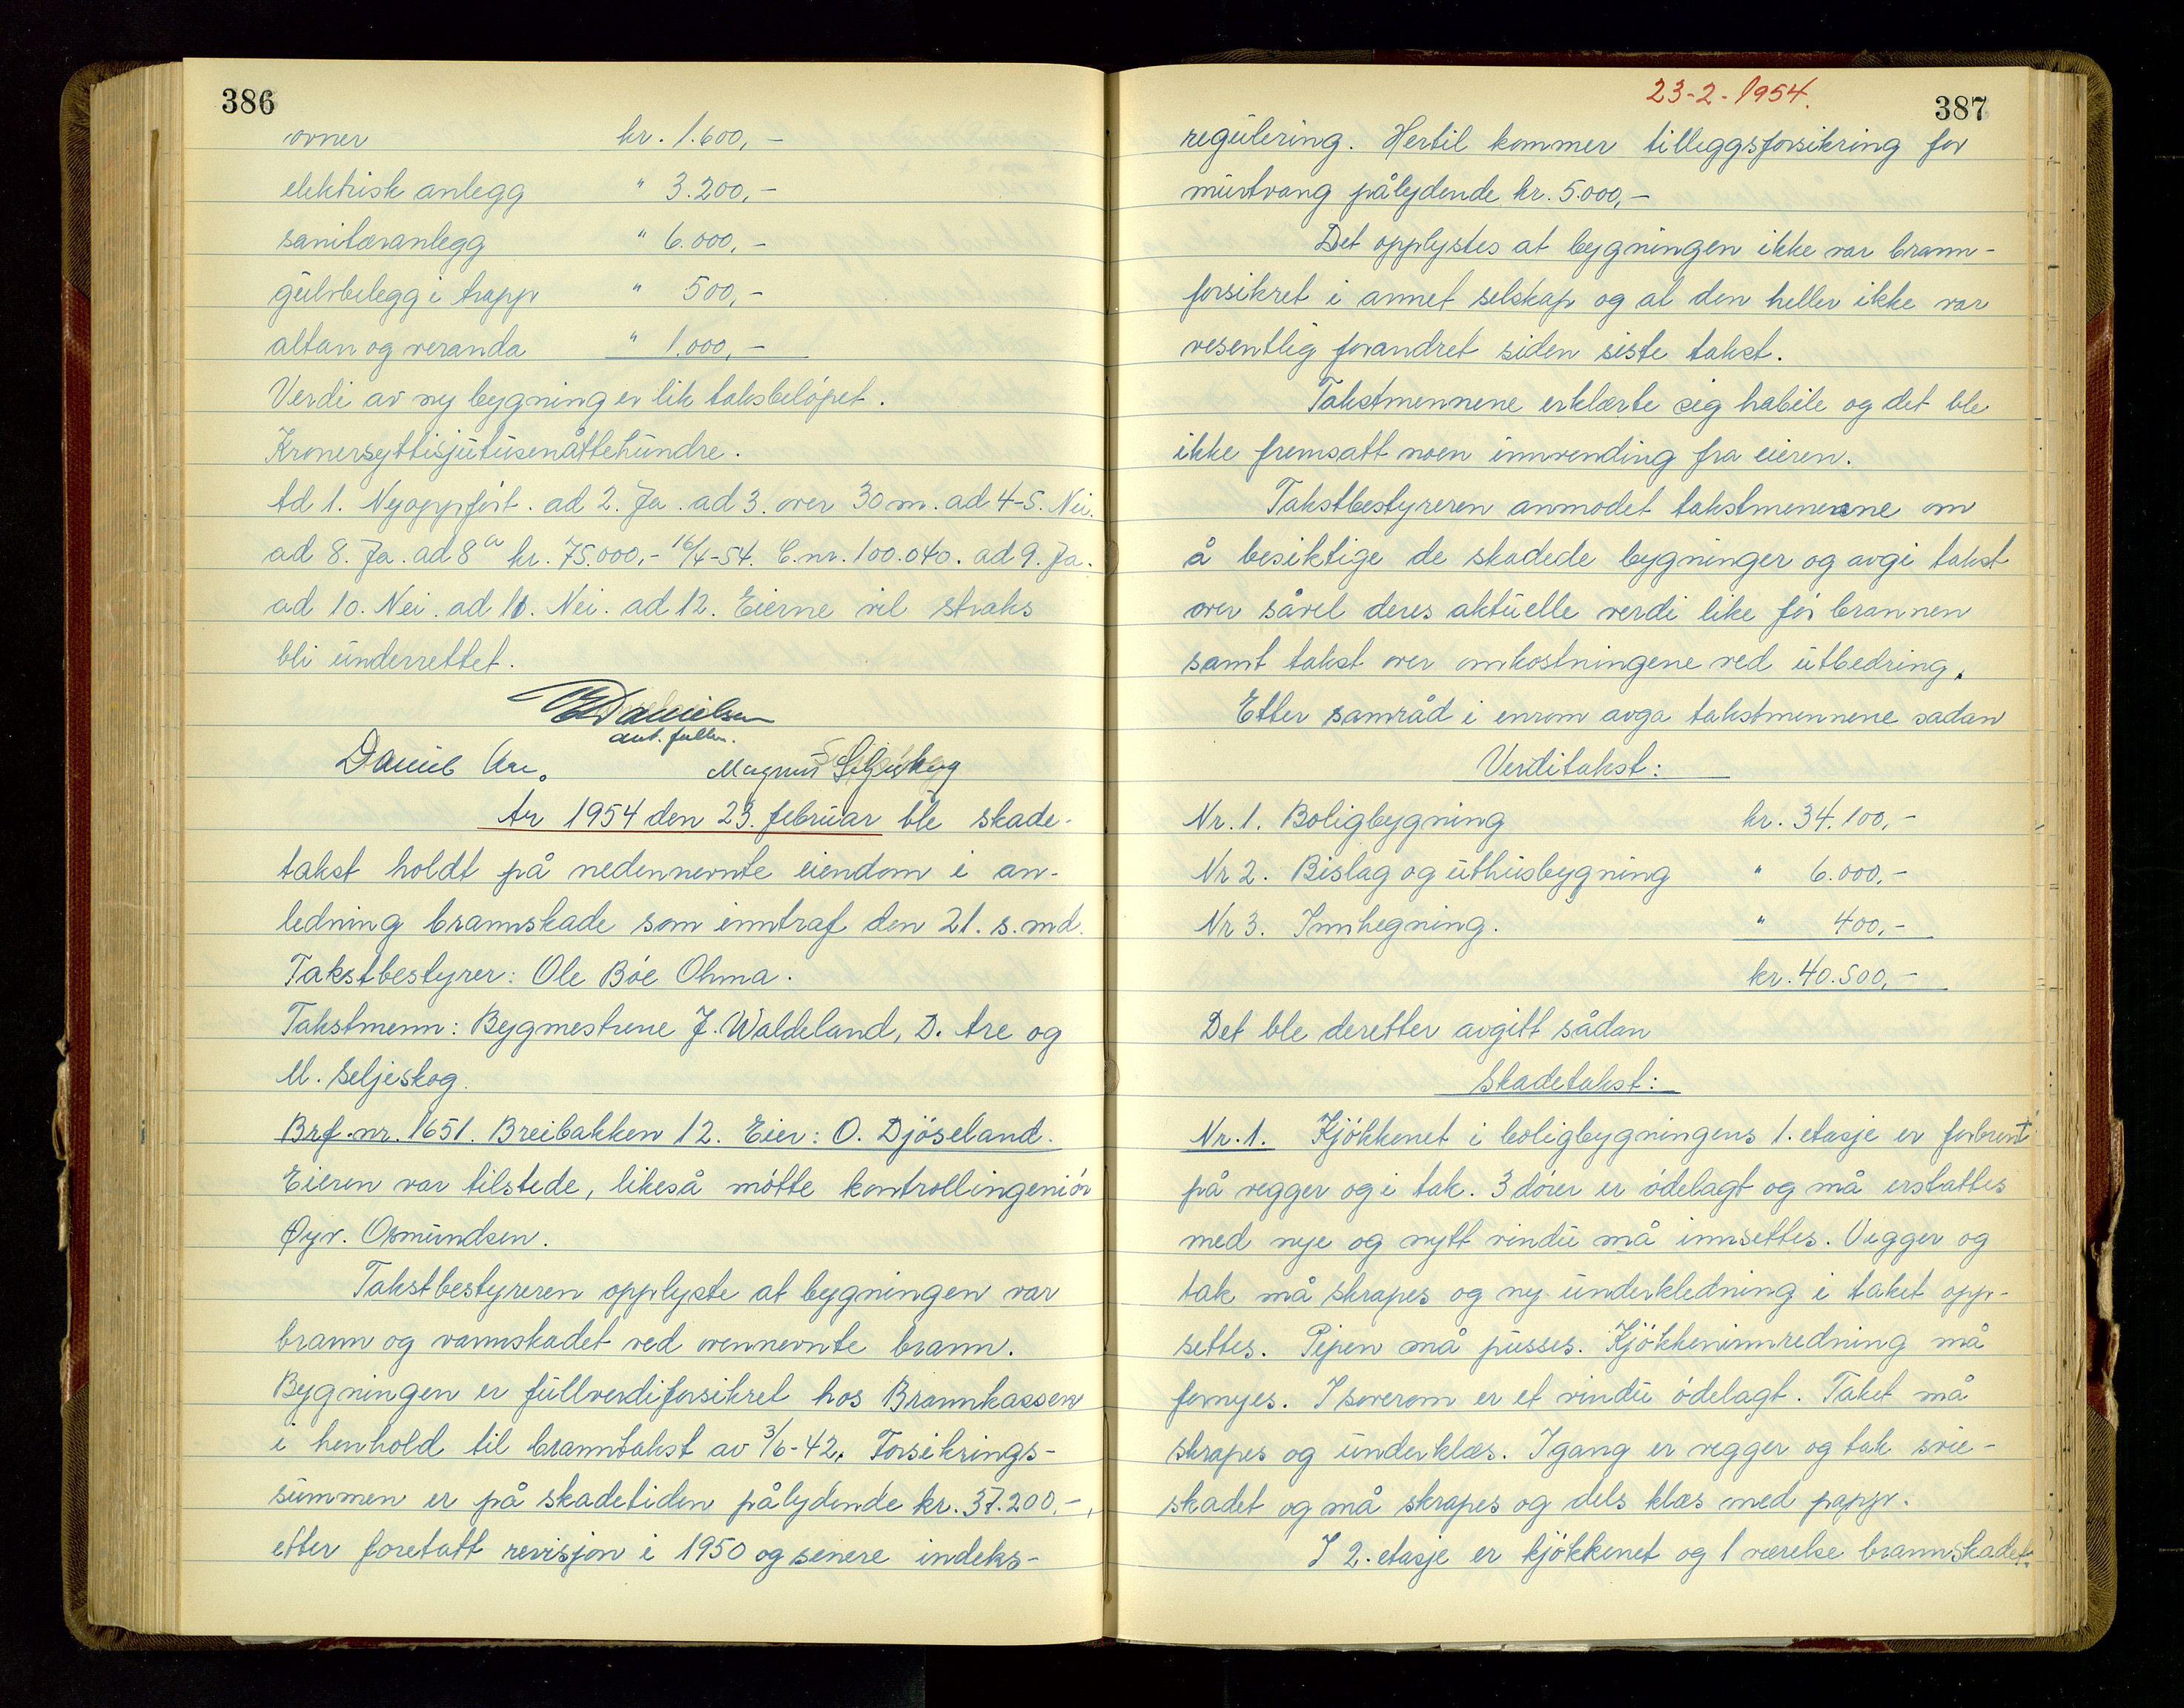 386
ovner kr. 1.600,-
elektrisk anlegg " 3.200,-
sanitæranlegg " 6.000,-
gulvbelegg i trapp " 500,-
altan og veranda " 1.000,-
Verdi av ny bygning er lik taksbeløpet.
Kronersyttisjutusenåttehundre.
Ad 1. Nyoppført. ad 2. Ja. ad 3. over 30 m. ad 4-5. Nei.
ad 8. Ja. ad 8a kr. 75.000,- 16/4-54. C.nr. 100.040. ad 9. Ja.
ad 10. Nei. ad 11. Nei. ad 12. Eierne vil straks
bli underrettet.
Danielsen
Daniel Are. Magnus Seljeskog
År 1954 den 23. februar ble skade-
takst holdt på nedennevnte eiendom i an-
ledning brannskade som inntraf den 21. s.md.
Takstbestyrer: Ole Bøe Ohma.
Takstmenn: Bygmestrene J. Waldeland, D. Are og
M. Seljeskog.
Brf.nr. 1651. Breibakken 12. Eier: O. Djøseland.
Eieren var tilstede, likeså møtte kontrollingeniør
Øyv. Osmundsen.
Takstbestyreren opplyste at bygningen var
brann og vannskadet ved ovennevnte brann.
Bygningen er fullverdiforsikret hos Brannkassen
i henhold til branntakst av 3/6-42. Forsikrings-
summen er på skadetiden pålydende kr. 37.200.-,
etter foretatt revisjon i 1950 og senere indeks-
23-2-1954.
387
regulering. Hertil kommer tilleggsforsikring for
murtvang pålydende kr. 5.000,-
Det opplystes at bygningen ikke var brann-
forsikret i annet selskap og at den heller ikke var
vesentlig forandret siden siste takst.
Takstmennene erklærte seg habile og det ble
ikke fremsatt noen innvending fra eieren.
Takstbestyreren anmodet takstmennene om
å besiktige de skadede bygninger og avgi takst
over såvel deres aktuelle verdi like før brannen
samt takst over omkostningene ved utbedring.
Etter samråd i enrom avga takstmennene sådan
Verditakst:
Nr. 1. Boligbygning kr. 34.100,-
Nr 2. Bislag og uthusbygning " 6.000,-
Nr 3. Innhegning. " 400,-
kr. 40.500,-
Det ble deretter avgitt sådan
Skadetakst:
Nr. 1. Kjøkkenet i boligbygningens 1. etasje er forbrent
på vegger og i tak. 3 dører er ødelagt og må erstattes
med nye og nytt vindu må innsettes. Vegger og
tak må skrapes og ny underkledning i taket opp-
settes. Pipen må pusses. Kjøkkeninnredning må
fornyes. I soverom er et vindu ødelagt. Taket må
skrapes og underklæs. I gang er vegger og tak svie-
skadet og må skrapes og dels klæs med papp.
I 2. etasje er kjøkkenet og 1 værelse brannskadet.